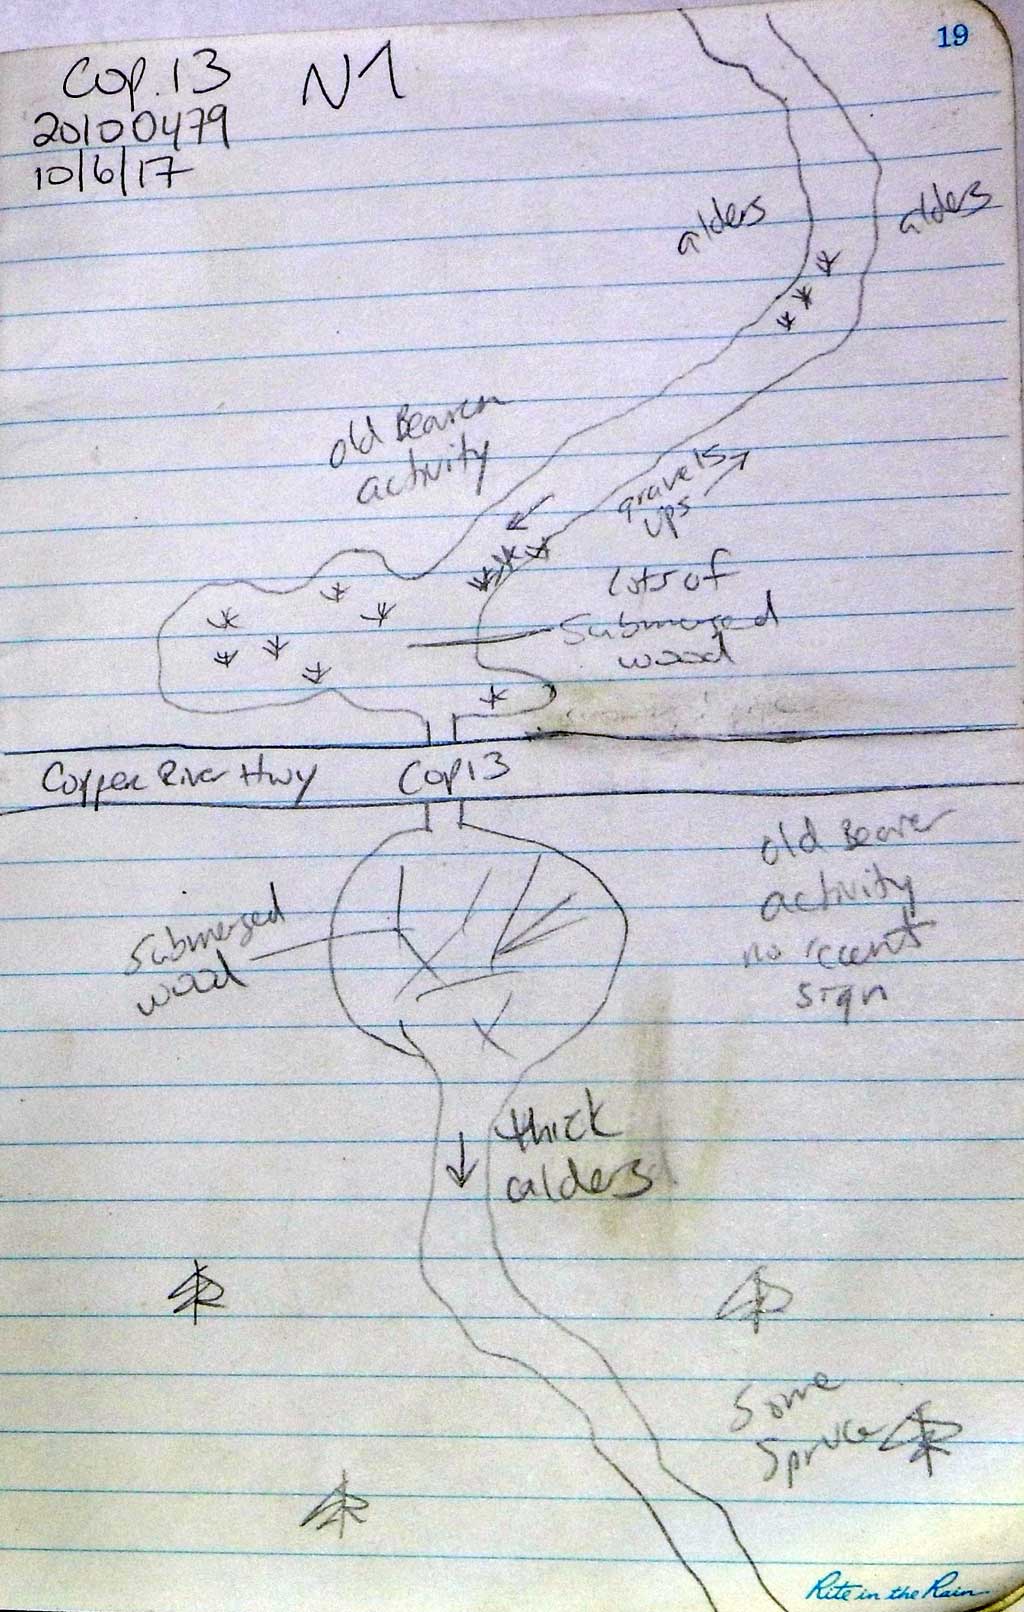 19
Cop. 13 N↑
20100479
10/6/17
alders
alders
old Beaver
activity
gravels
ups
lots of
submerged
wood
Copper River Hwy Cop13
old Beaver
activity
no recent
sign
submerged
wood
thick
alders
Some
Spruce
Rite in the Rain